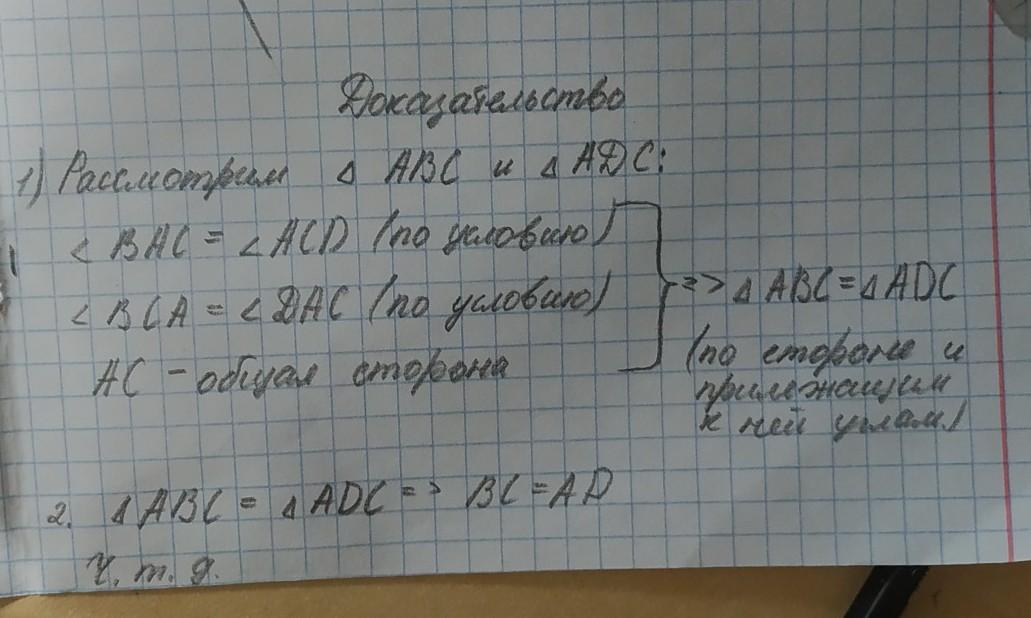 Доказательство
1) Рассмотрим △ ABC и △ ADC:
∠ BAC = ∠ ACD (по условию)
∠ BCA = ∠ DAC (по условию)
AC - общая сторона
=> △ ABC = △ ADC
(по стороне и
прилежащим
к ней углам)
2. △ ABC = △ ADC => BC = AD
Ч. т. д.